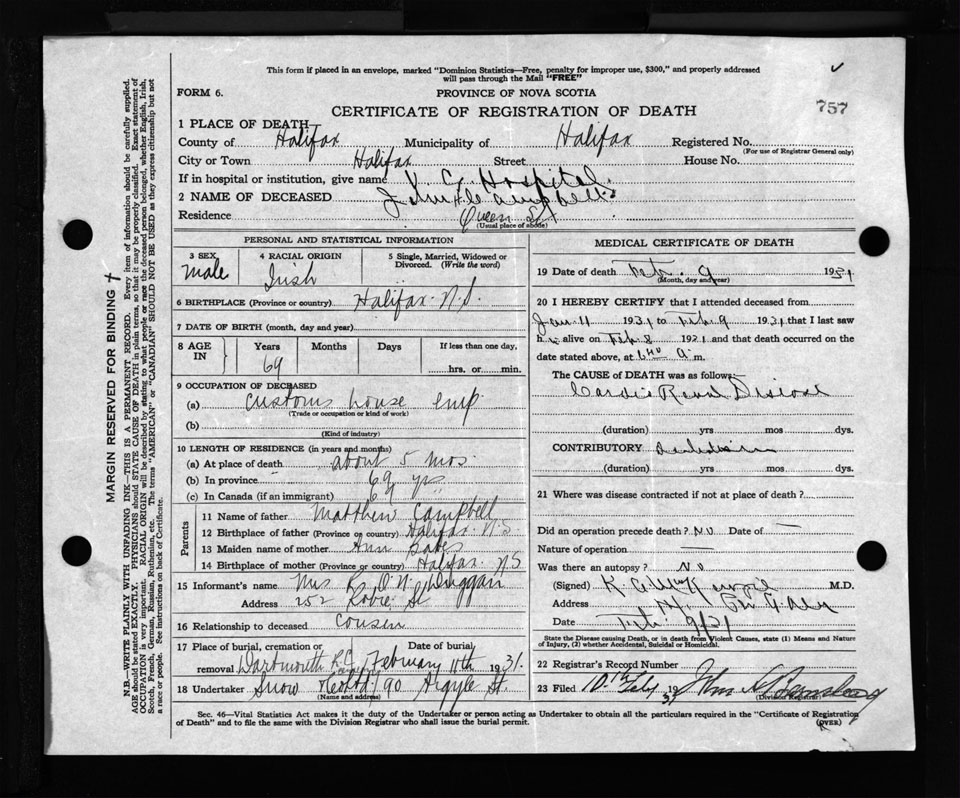 This form if placed in an envelope, marked "Dominion Statistics—Free, penalty for improper use, $300," and properly addressed
will pass through the Mail "FREE"
FORM 6.
PROVINCE OF NOVA SCOTIA
757
CERTIFICATE OF REGISTRATION OF DEATH
1 PLACE OF DEATH
County of Halifax Municipality of Halifax Registered No.
(For use of Registrar General only)
City or Town Halifax Street House No.
If in hospital or institution, give name V. G. Hospital.
2 NAME OF DECEASED John Campbell
Residence Queen St
(Usual place of abode)
PERSONAL AND STATISTICAL INFORMATION
3 SEX 4 RACIAL ORIGIN 5 Single, Married, Widowed or
Divorced. (Write the word)
male Irish
6 BIRTHPLACE (Province or country) Halifax N.S.
7 DATE OF BIRTH (month, day and year)
8 AGE Years Months Days If less than one day,
IN
69 hrs. or min.
9 OCCUPATION OF DECEASED
(a) customs house emp
(Trade or occupation or kind of work)
(b)
(Kind of industry)
10 LENGTH OF RESIDENCE (in years and months)
(a) At place of death about 5 mos.
(b) In province 69 yrs
(c) In Canada (if an immigrant) "
Parents
11 Name of father Matthew Campbell
12 Birthplace of father (Province or country) Halifax N.S
13 Maiden name of mother Ann
14 Birthplace of mother (Province or country) Halifax N.S
15 Informant's name Mrs R. O'N. Duggan
Address 252 Robie St
16 Relationship to deceased cousin
17 Place of burial, cremation or Date of burial,
removal Dartmouth R.C. February 11th 1931.
18 Undertaker Snow 90 Argyle St.
(Name and address)
MEDICAL CERTIFICATE OF DEATH
19 Date of death Feb. 9 1931
(Month, day and year)
20 I HEREBY CERTIFY that I attended deceased from
Jan 11 1931 to Feb. 9 1931 that I last saw
h alive on Feb 8 1921 and that death occurred on the
date stated above, at 6 40 a m.
The CAUSE of DEATH was as follows:
Cardio Renal Disease
(duration) yrs mos dys.
CONTRIBUTORY
(duration) yrs mos dys.
21 Where was disease contracted if not at place of death?
Did an operation precede death? No Date of —
Nature of operation —
Was there an autopsy? No
(Signed) M.D.
Address
Date Feb. 9/31
State the Disease causing Death, or in death from Violent Causes, state (1) Means and Nature
of Injury, (2) whether Accidental, Suicidal or Homicidal.
22 Registrar's Record Number
23 Filed 10th Feby 1931 John A
(Division Registrar)
Sec. 46—Vital Statistics Act makes it the duty of the Undertaker or person acting as Undertaker to obtain all the particulars required in the "Certificate of Registration
of Death" and to file the same with the Division Registrar who shall issue the burial permit.
(OVER)
MARGIN RESERVED FOR BINDING
N.B.—WRITE PLAINLY WITH UNFADING INK—THIS IS A PERMANENT RECORD. Every item of information should be carefully supplied.
AGE should be stated EXACTLY. PHYSICIANS should STATE CAUSE OF DEATH in plain terms, so that it may be properly classified. Exact statement of
OCCUPATION is very important. RACIAL ORIGIN will be described by stating to what people or race the deceased person belonged, whether English, Irish,
Scotch, French, German, Russian, Ruthenian, etc. The terms "AMERICAN" or "CANADIAN" SHOULD NOT BE USED as they express citizenship but not
a race or people. See instructions on back of Certificate.